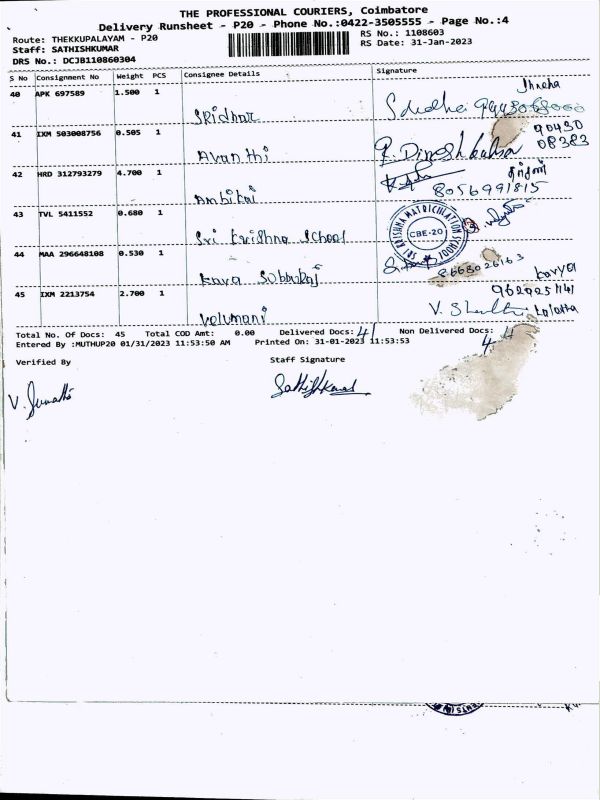 THE PROFESSIONAL COURIERS, Coimbatore
Delivery Runsheet - P20 - Phone No.:0422-3505555 - Page No.:4
Route: THEKKUPALAYAM - P20
RS No.: 1108603
Staff: SATHISHKUMAR
RS Date: 31-Jan-2023
DRS No.: DCJB110860304
S No Consignment No Weight PCS Consignee Details Signature
40 APK 697589 1.500 1 Sridhar
41 IXM 503008756 0.505 1 Avanthi R. Dinesh 90430 08383
42 HRD 312793279 4.700 1 Ambikai 8056991815
43 TVL 5411552 0.680 1 Sri krishna School
SRI KRISHNA MATRICULATION SCHOOL CBE-20
44 MAA 296648108 0.530 1 8668026163 kavya
45 IXM 2213754 2.700 1 Velumani V.
Total No. Of Docs: 45 Total COD Amt: 0.00 Delivered Docs: 41 Non Delivered Docs: 4
Entered By :MUTHUP20 01/31/2023 11:53:50 AM Printed On: 31-01-2023 11:53:53
Verified By Staff Signature
V. Sumathi Sathishkumar